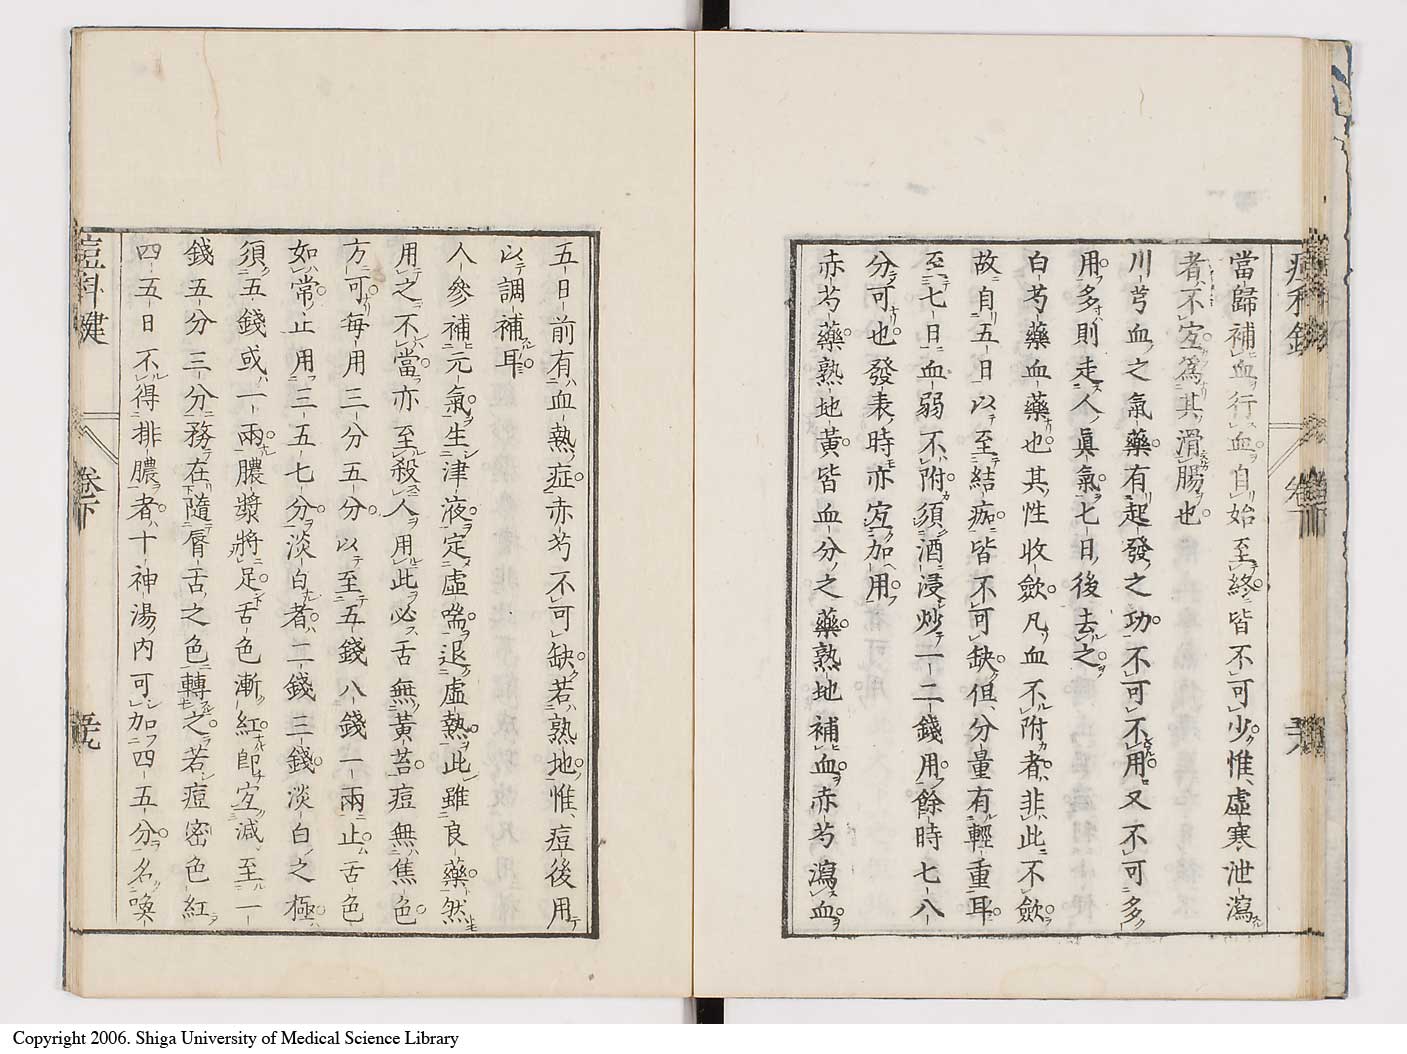 當歸補血行血自始至終皆不可少惟虛寒泄瀉
者不宜為其滑腸也
川芎血之氣藥有起發之功不可不用又不可多
用多則走人眞氣七日後去之
白芍藥血藥也其性收歛凡血不附者非此不歛
故自五日以至結痂皆不可缺但分量有輕重耳
至七日血弱不附須酒浸炒一二錢用餘時七八
分可也發表時亦宜加用
赤芍藥熟地黃皆血分之藥熟地補血赤芍瀉血
五日前有血熱症赤芍不可缺若熟地惟痘後用
以調補耳
人參補元氣生津液定虛喘退虛熱此雖良藥然
用之不當亦至殺人用此必舌無黃苔痘無焦色
方可每用三分五分以至五錢八錢一兩止舌色
如常止用三五七分淡白者二錢三錢淡白之極
須五錢或一兩膿漿將足舌色漸紅即宜減至一
錢五分三分務在隨唇舌之色轉之若痘密色紅
四五日不得排膿者十神湯內可加四五分名喚
痘科鍵
卷下
五九
Copyright 2006. Shiga University of Medical Science Library